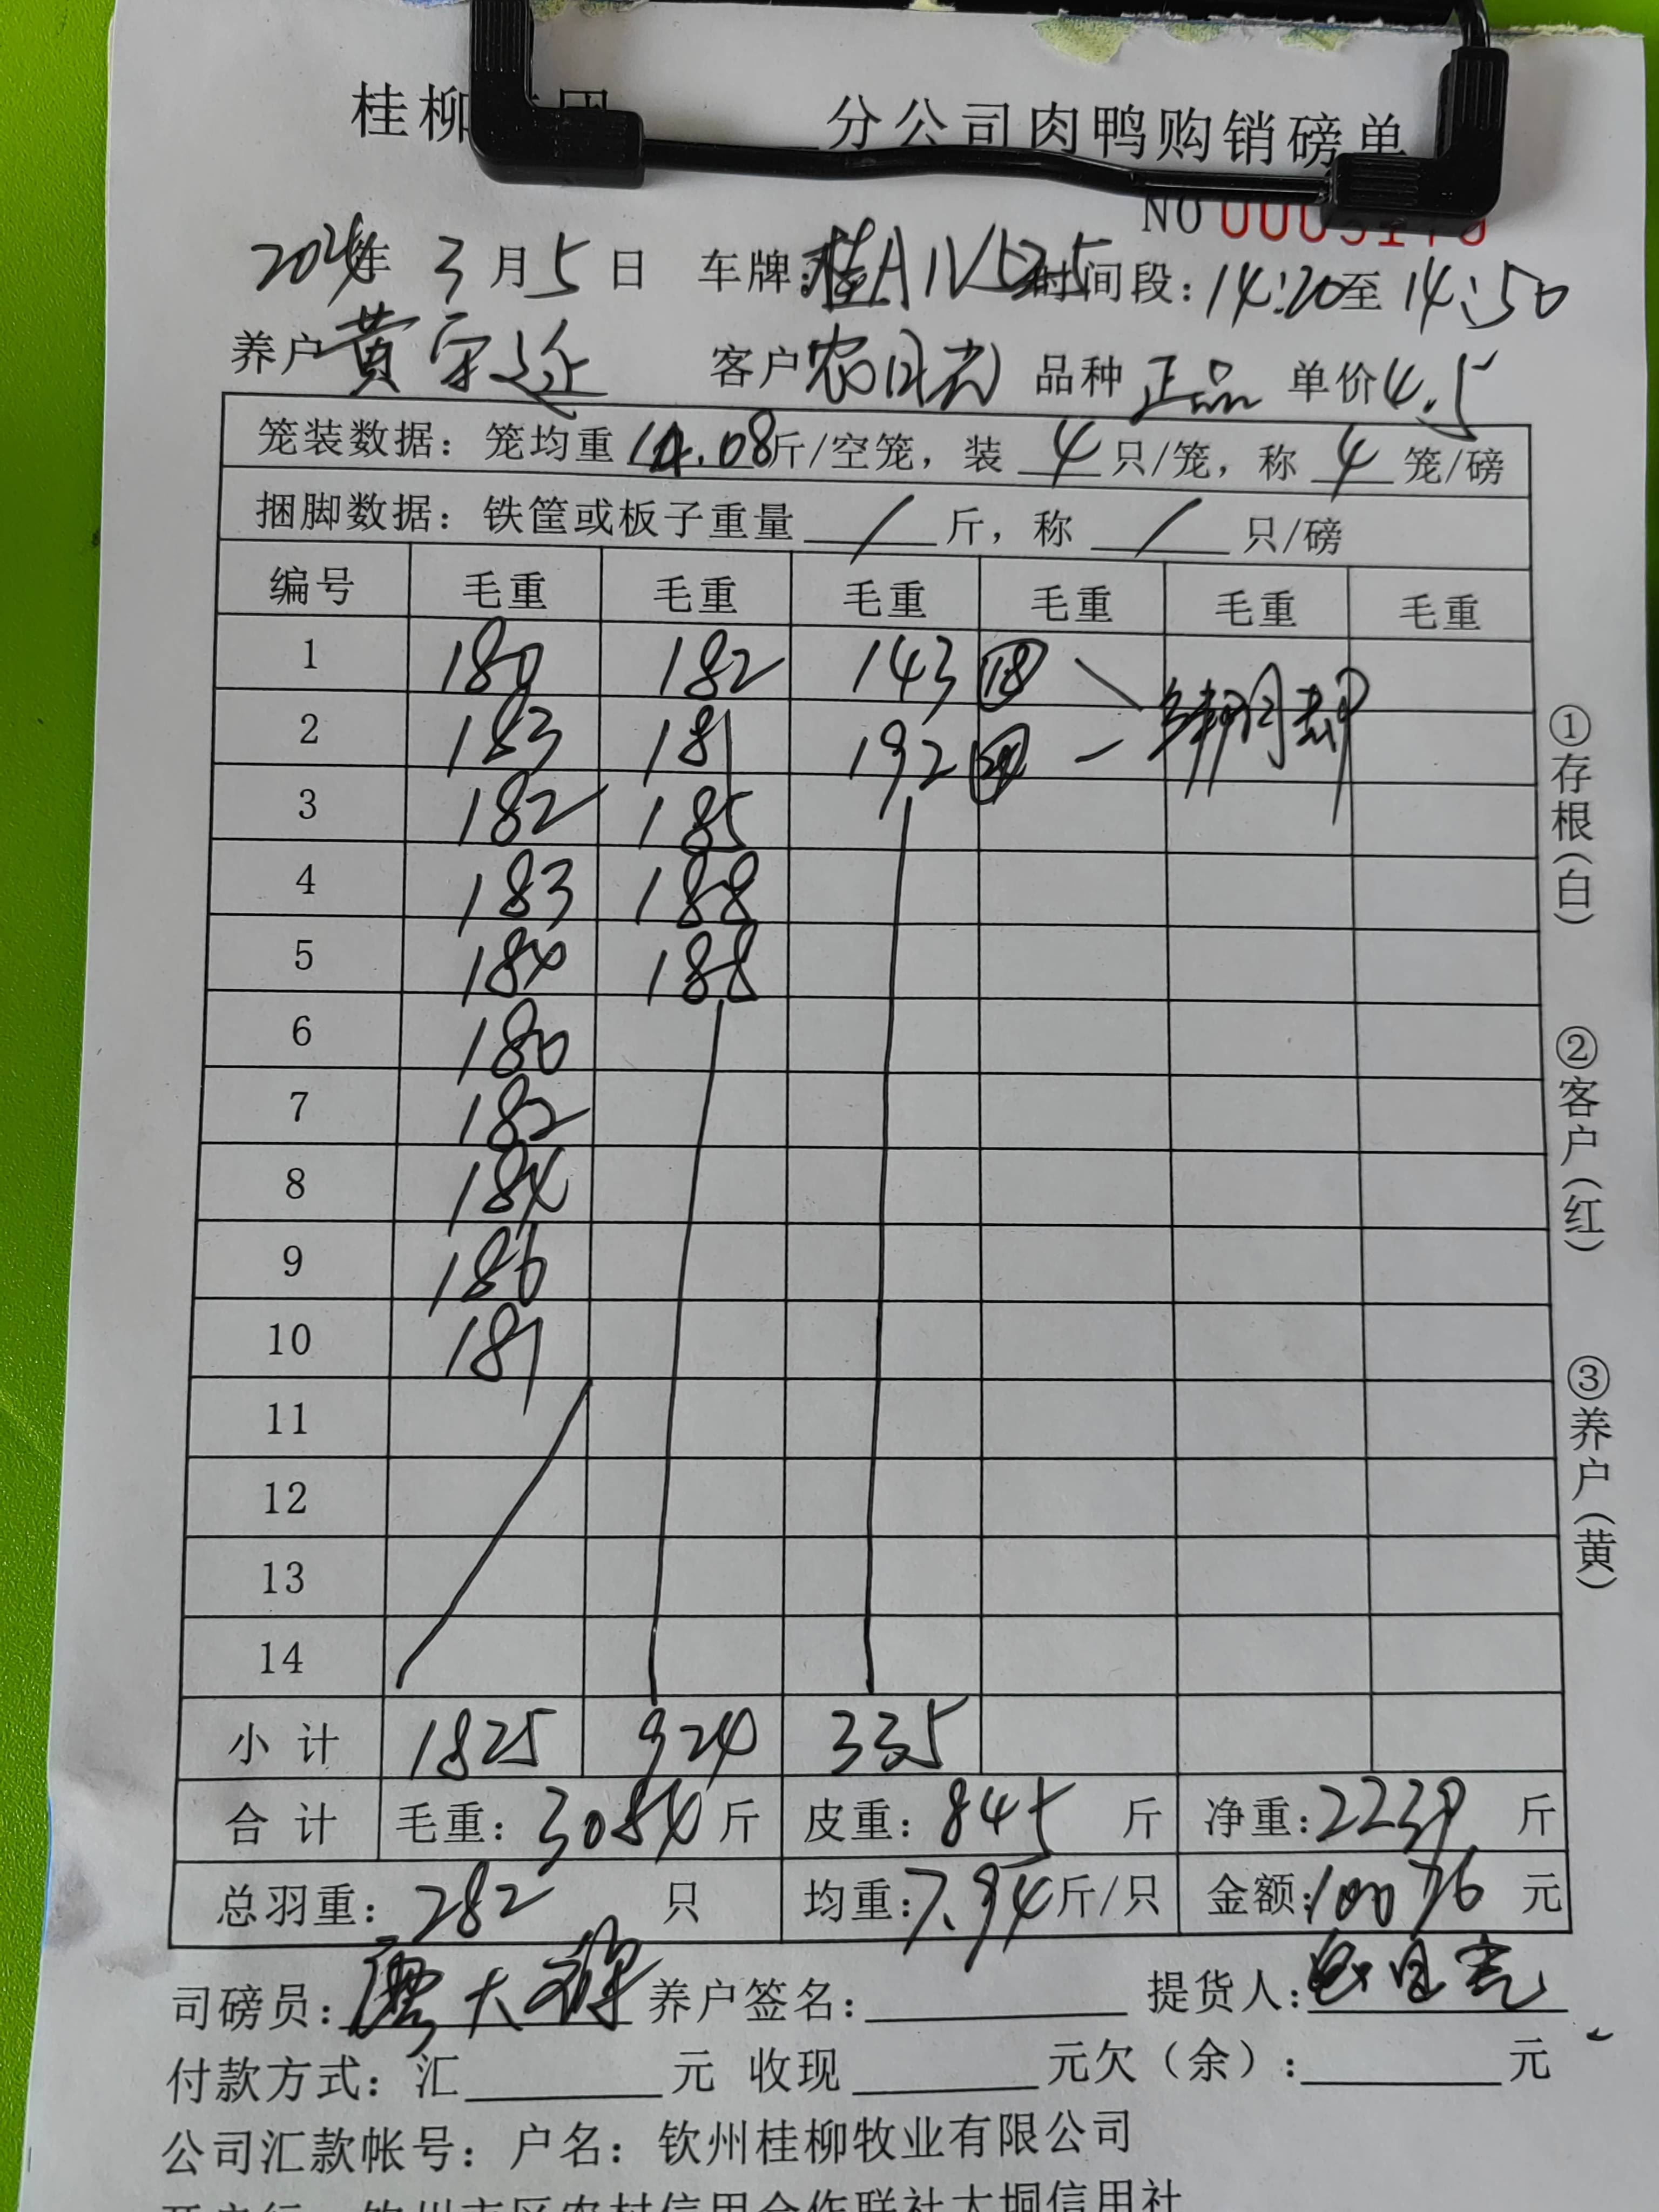 桂柳 分公司肉鸭购销磅单
NO
2024年 3月5日 车牌:桂A 时间段:14:20至14:50
养户黄 客户农 品种正品 单价4.5
笼装数据:笼均重14.08斤/空笼,装4只/笼,称4笼/磅
捆脚数据:铁筐或板子重量/斤,称/只/磅
编号 毛重 毛重 毛重 毛重 毛重 毛重
1 180 182 143 18
2 183 181 192 24
3 182 185
4 183 188
5 184 188
6 180
7 182
8 184
9 186
10 181
11
12
13
14
小计 1825 924 335
合计 毛重:3084斤 皮重:845斤 净重:2239斤
总羽重:282只 均重:7.94斤/只 金额:10076元
司磅员:廖大 养户签名: 提货人:
付款方式:汇 元 收现 元欠(余): 元
公司汇款帐号:户名:钦州桂柳牧业有限公司
开户行:钦州市区农村信用合作联社大垌信用社
①存根(白)
②客户(红)
③养户(黄)